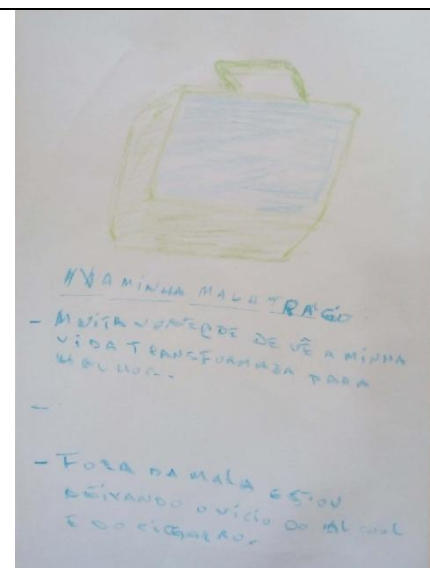 NA MINHA MALA TRAGO
- MUITA VONTADE DE VÊ A MINHA
VIDA TRANSFORMADA PARA
MELHOR.
-
- FORA DA MALA ESTOU
DEIXANDO O VÍCIO DO ALCOOL
E DO CIGARRO.